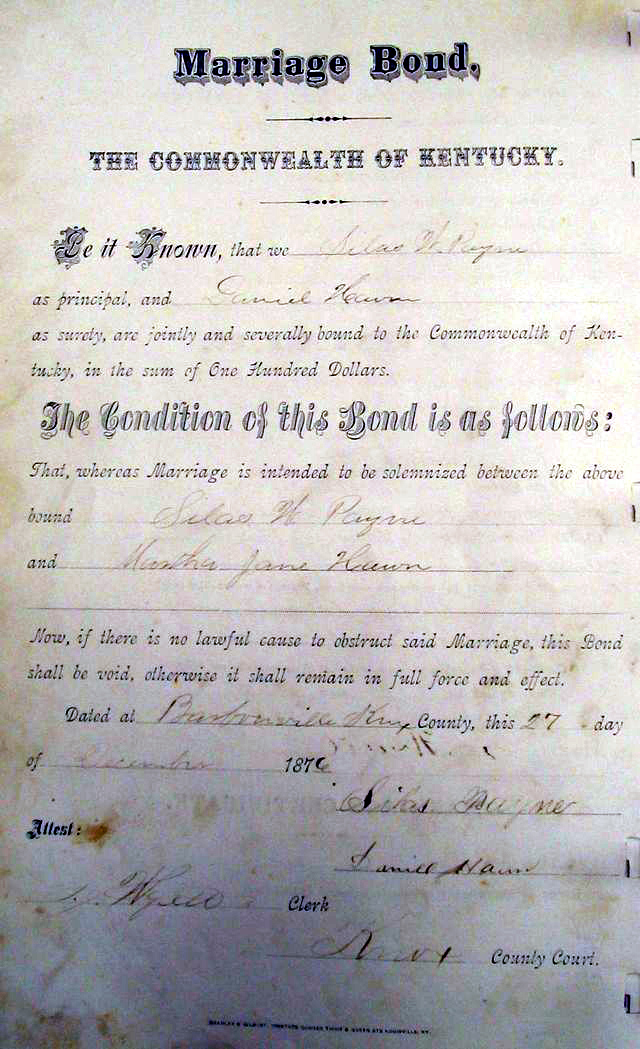 Marriage Bond,
THE COMMONWEALTH OF KENTUCKY.
Be it Known, that we Silas W. Payne
as principal, and Daniel Hawn
as surety, are jointly and severally bound to the Commonwealth of Ken-
tucky, in the sum of One Hundred Dollars.
The Condition of this Bond is as follows:
That, whereas Marriage is intended to be solemnized between the above
bound Silas W Payne
and Martha Jane Hawn
Now, if there is no lawful cause to obstruct said Marriage, this Bond
shall be void, otherwise it shall remain in full force and effect.
Dated at Barbourville Knox County, this 27 day
of December 1876
Silas Payne
Attest:
Daniel Hawn
Clerk
Knox County Court.